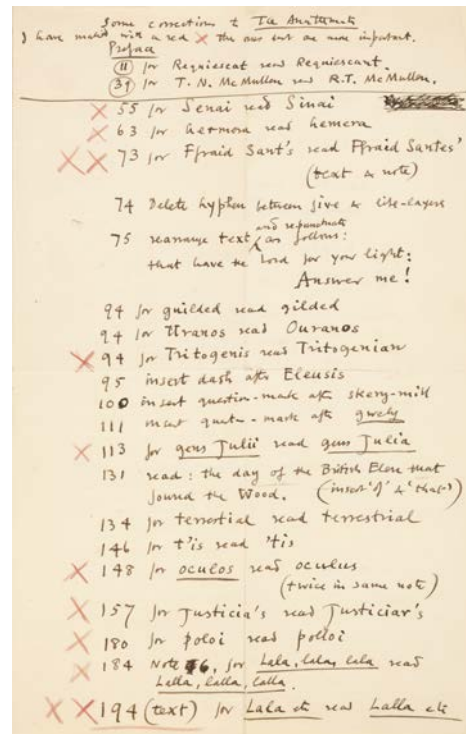 Some corrections to The Anathemata
I have marked with a red X the ones that are more important.
Preface
(11) for Requiescat read Requiescant.
(39) for T. N. McMullon read R.T. McMullen.
X 55 for Senai read Sinai
X 63 for hermora read hemera
X X 73 for Ffraid Sant's read Ffraid Santes'
(text & note)
74 Delete hyphen between give & life-layers
and repunctuate
75 rearrange text as follows:
that have the Lord for your light:
Answer me!
94 for guilded read gilded
94 for Uranos read Ouranos
X 94 for Tritogenis read Tritogenian
95 insert dash after Eleusis
100 insert question-mark after skerry-mill
111 insert mark after gwely
X 113 for gens Julii read gens Julia
131 read: the day of the British Elen that
found the Wood. (insert 'of' & 'that')
134 for terrestial read terrestrial
146 for t'is read 'tis
X 148 for oculos read oculus
(twice in same note)
X 157 for Justicia's read Justiciar's
X 180 for poloi read polloi
X 184 Note 6, for Lala, lala, lala read
Lalla, lalla, lalla.
X X 194 (text) for Lala etc read Lalla etc